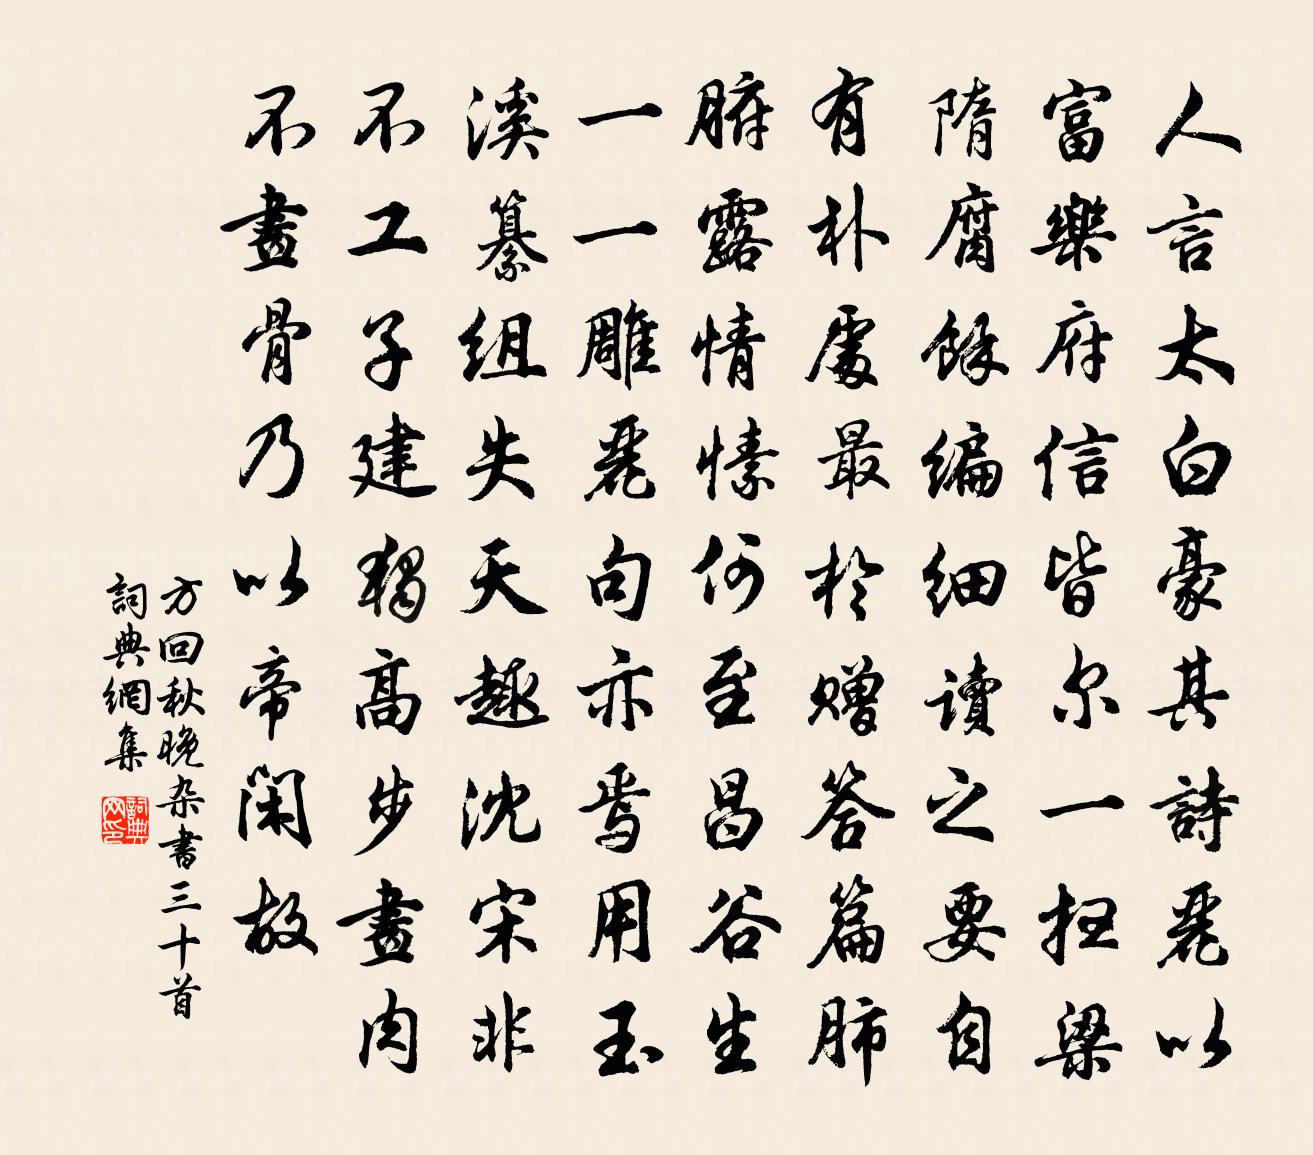 人言太白豪其詩麗以
富樂府信皆尔一扫梁
隋腐餘編細讀之要自
有朴處最於贈答篇肺
腑露情愫何至昌谷生
一一雕麗句亦焉用玉
溪纂組失天趣沈宋非
不工子建獨高步畫肉
不畫骨乃以帝閑故
方回秋晚杂書三十首
詞典網集
詞典网印